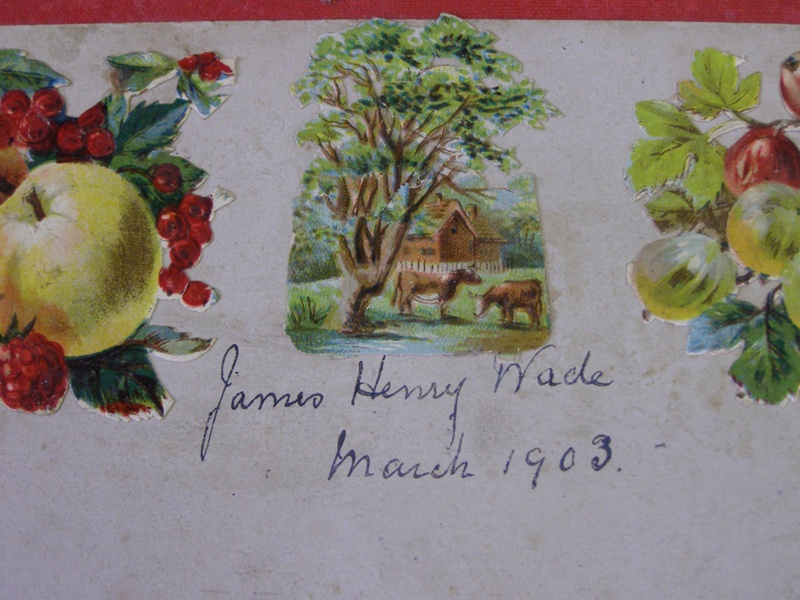 James Henry Wade
March 1903.